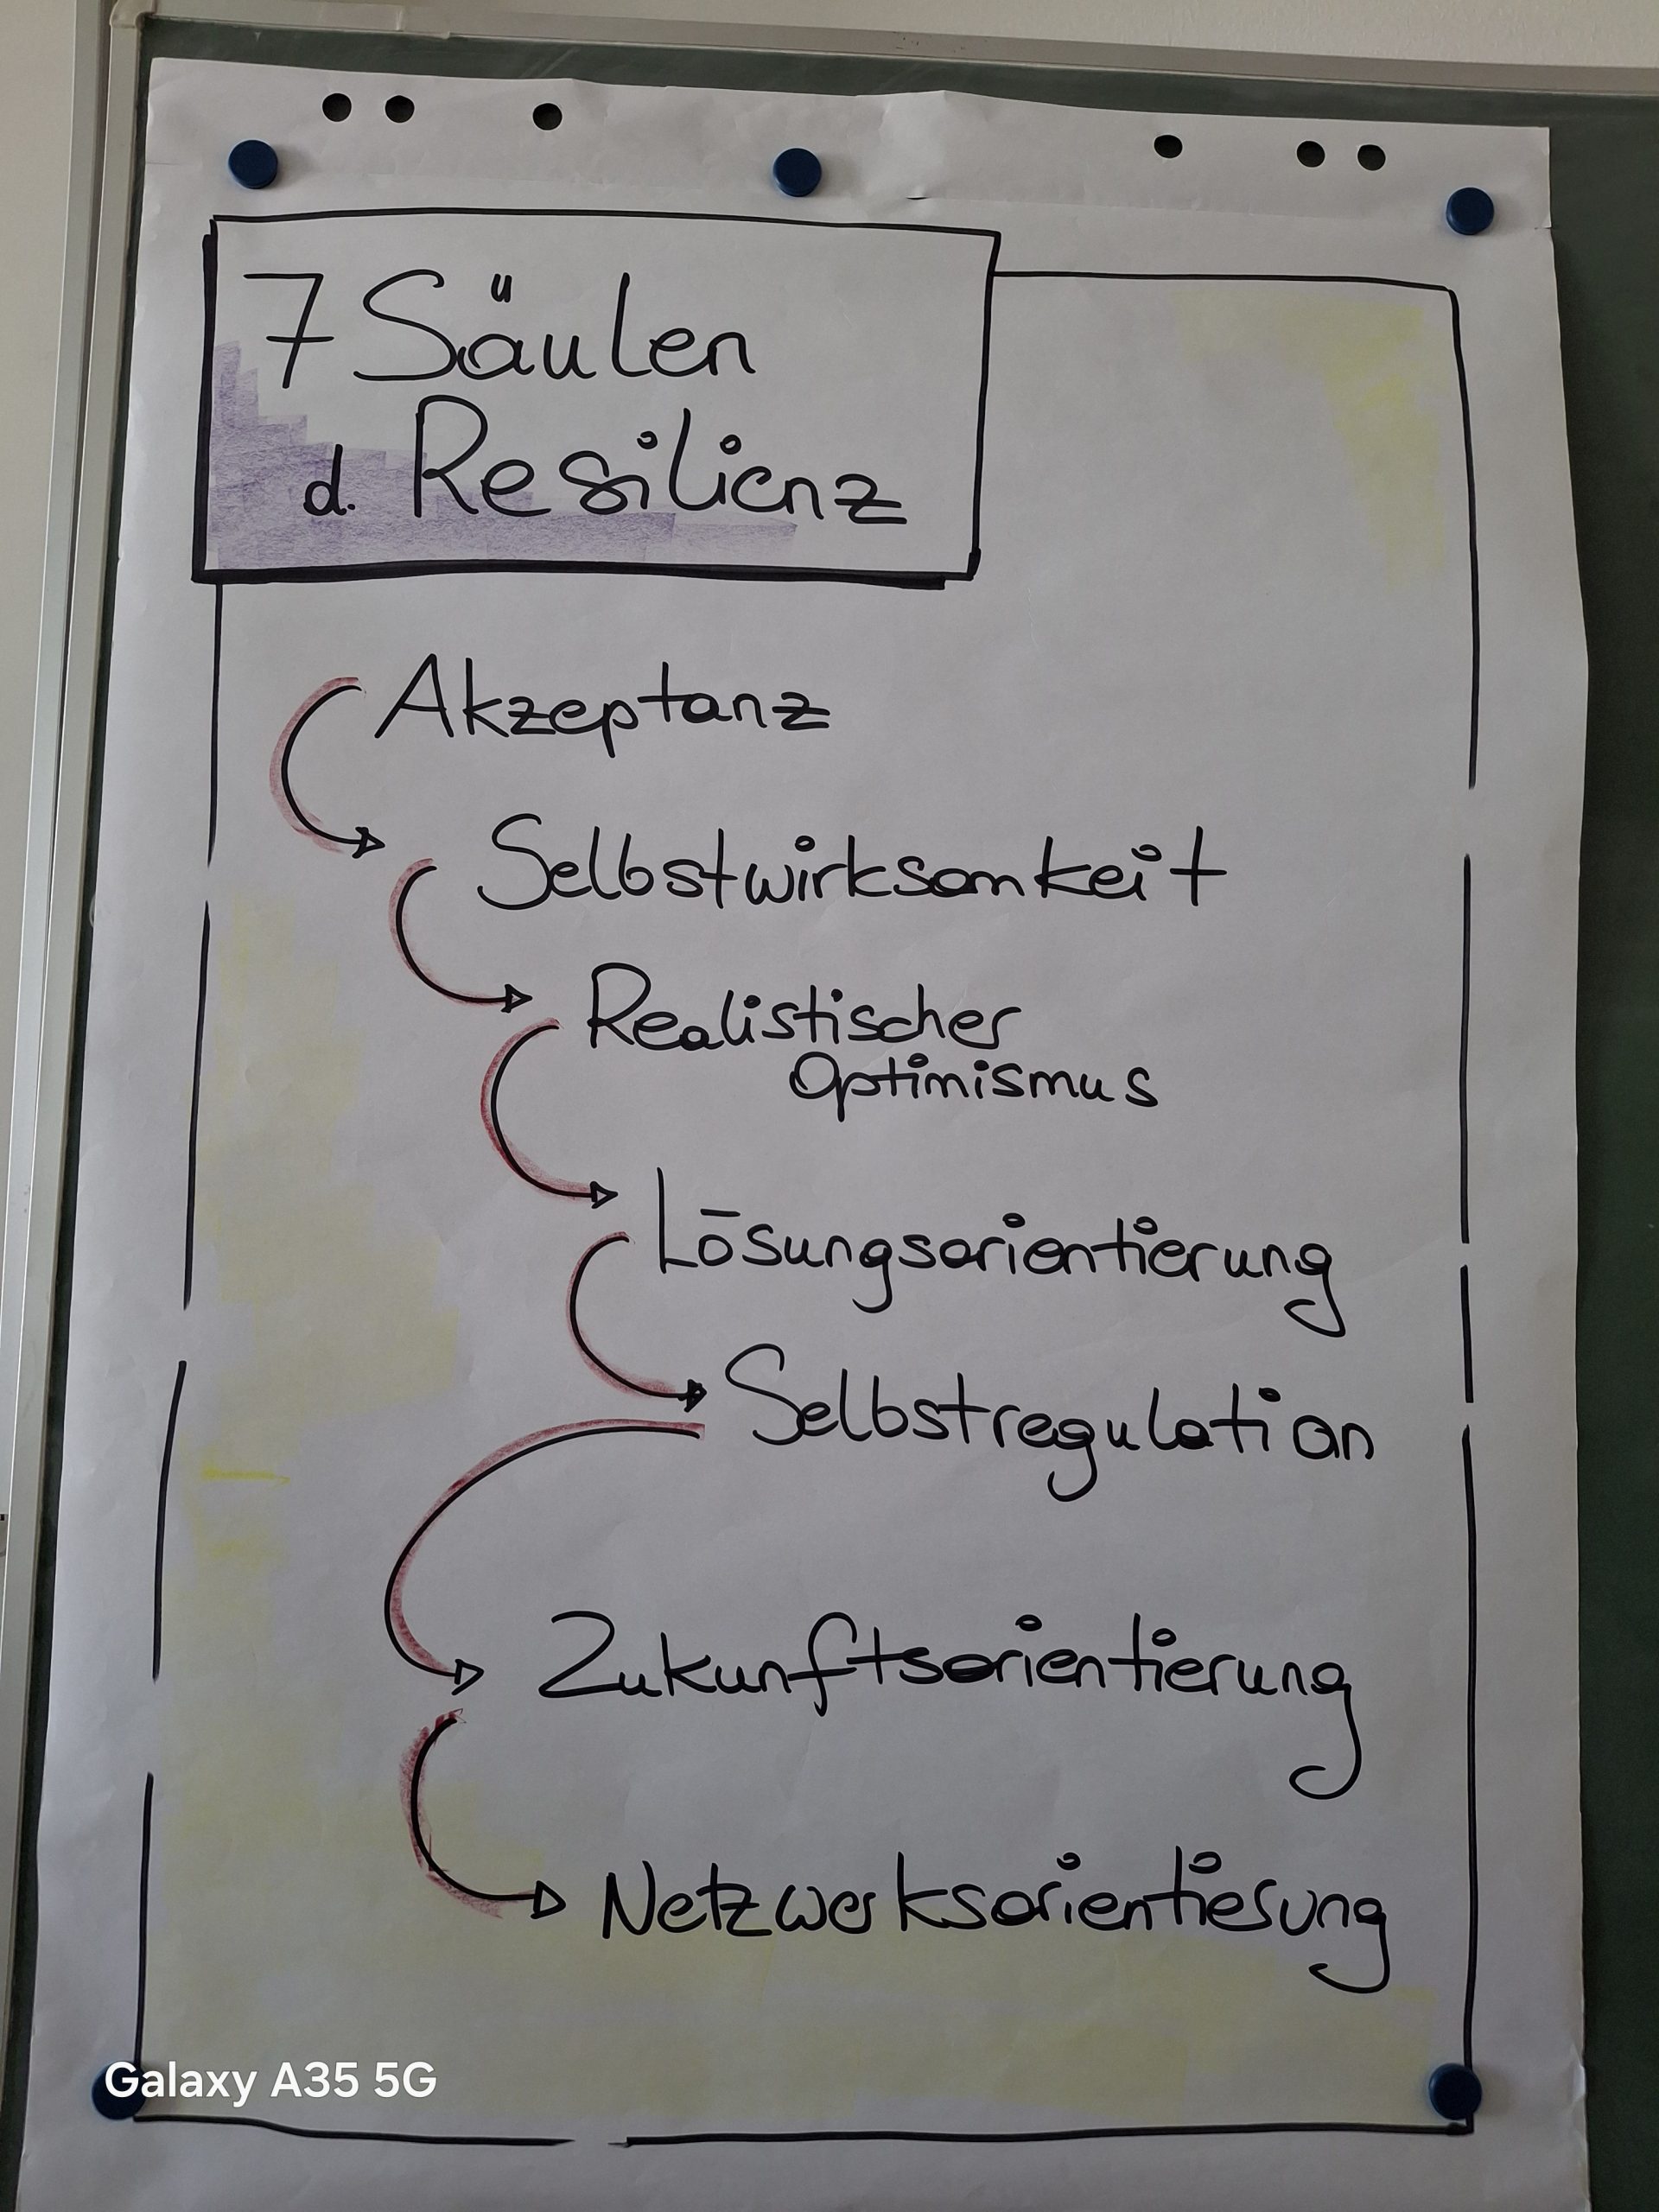 7 Säulen
d. Resilienz
Akzeptanz
Selbstwirksamkeit
Realistischer
Optimismus
Lösungsorientierung
Selbstregulation
Zukunftsorientierung
Netzwerksorientierung
Galaxy A35 5G